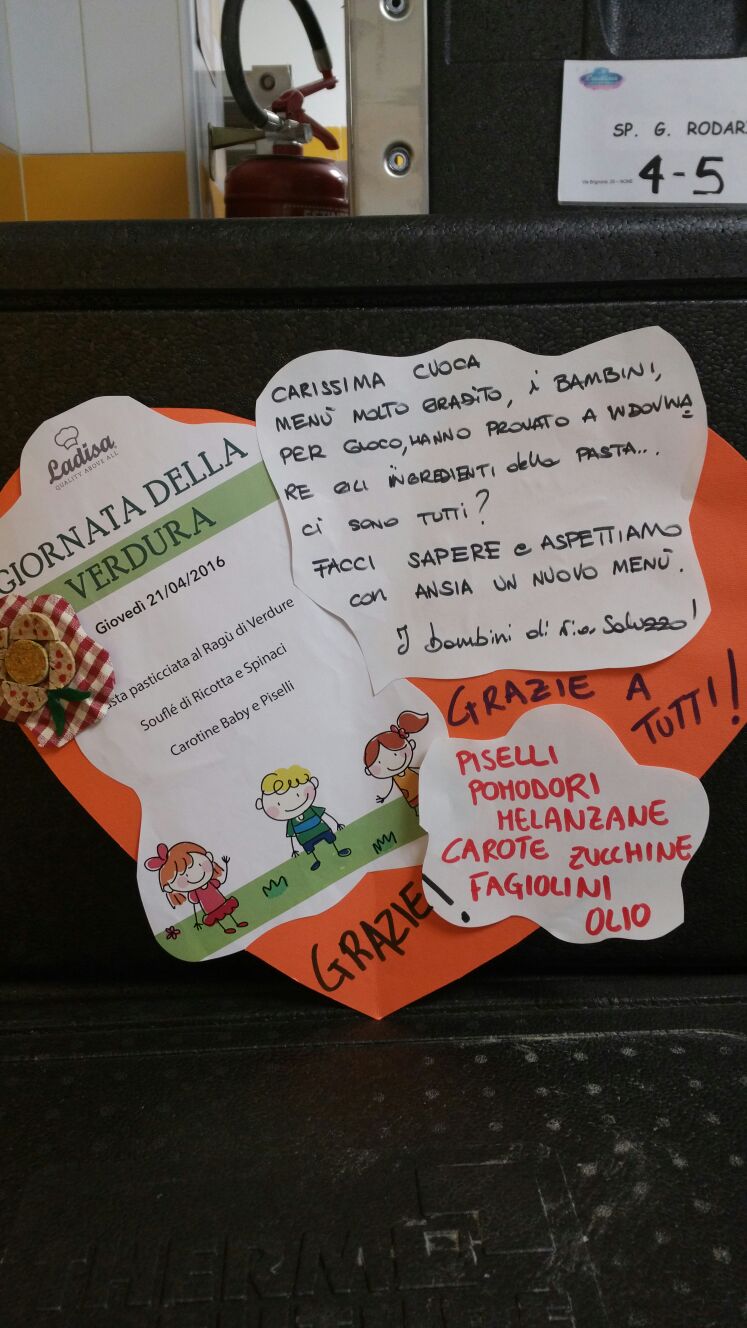 SP. G. RODARI
4-5
CARISSIMA CUOCA
MENÙ MOLTO GRADITO, i BAMBINI,
PER GIOCO, HANNO PROVATO A INDOVINA
RE GLI INGREDIENTI della PASTA...
CI SONO TUTTI?
FACCI SAPERE e ASPETTIAMO
con ANSIA UN NUOVO MENÙ.
I bambini di
Ladisa
QUALITY ABOVE ALL
GIORNATA DELLA
VERDURA
Giovedì 21/04/2016
sta pasticciata al Ragù di Verdure
Souflé di Ricotta e Spinaci
Carotine Baby e Piselli
GRAZIE A
TUTTI!!
PISELLI
POMODORI
MELANZANE
CAROTE ZUCCHINE
FAGIOLINI
OLIO
GRAZIE!